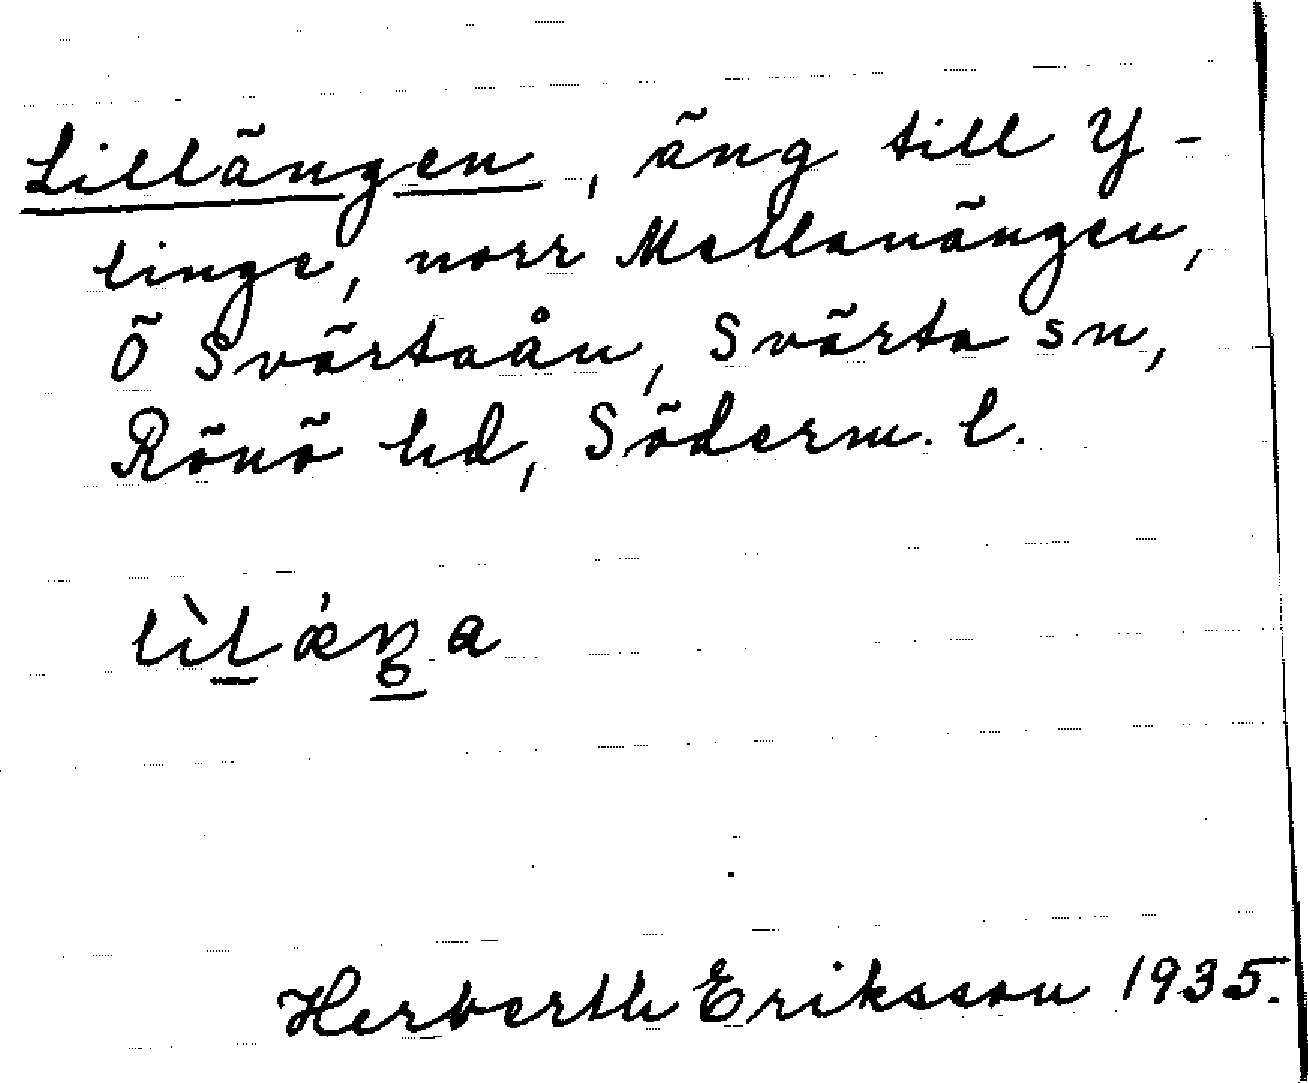 Lillängen, äng till Y-
linge, norr Mellanängen,
Ö Svärtaån, Svärta sn,
Rönö hd, Söderm. l.
lìlǽŋa
Herberth Eriksson 1935.